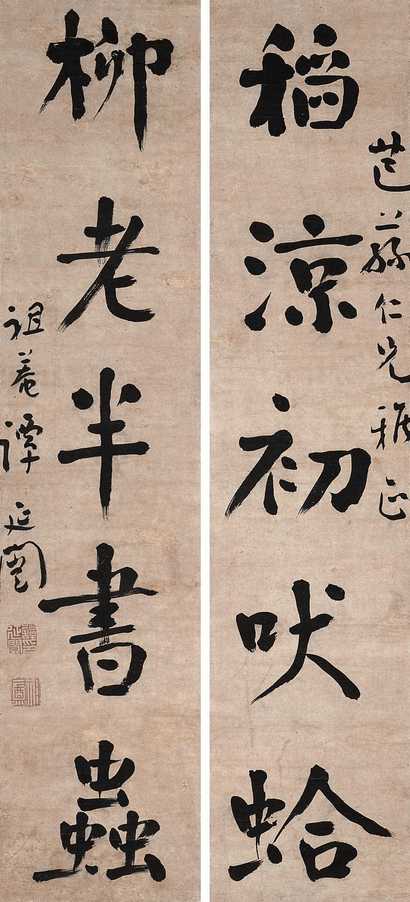 稻涼初吠蛤
仁兄雅正
柳老半書蟲
祖菴譚延闓